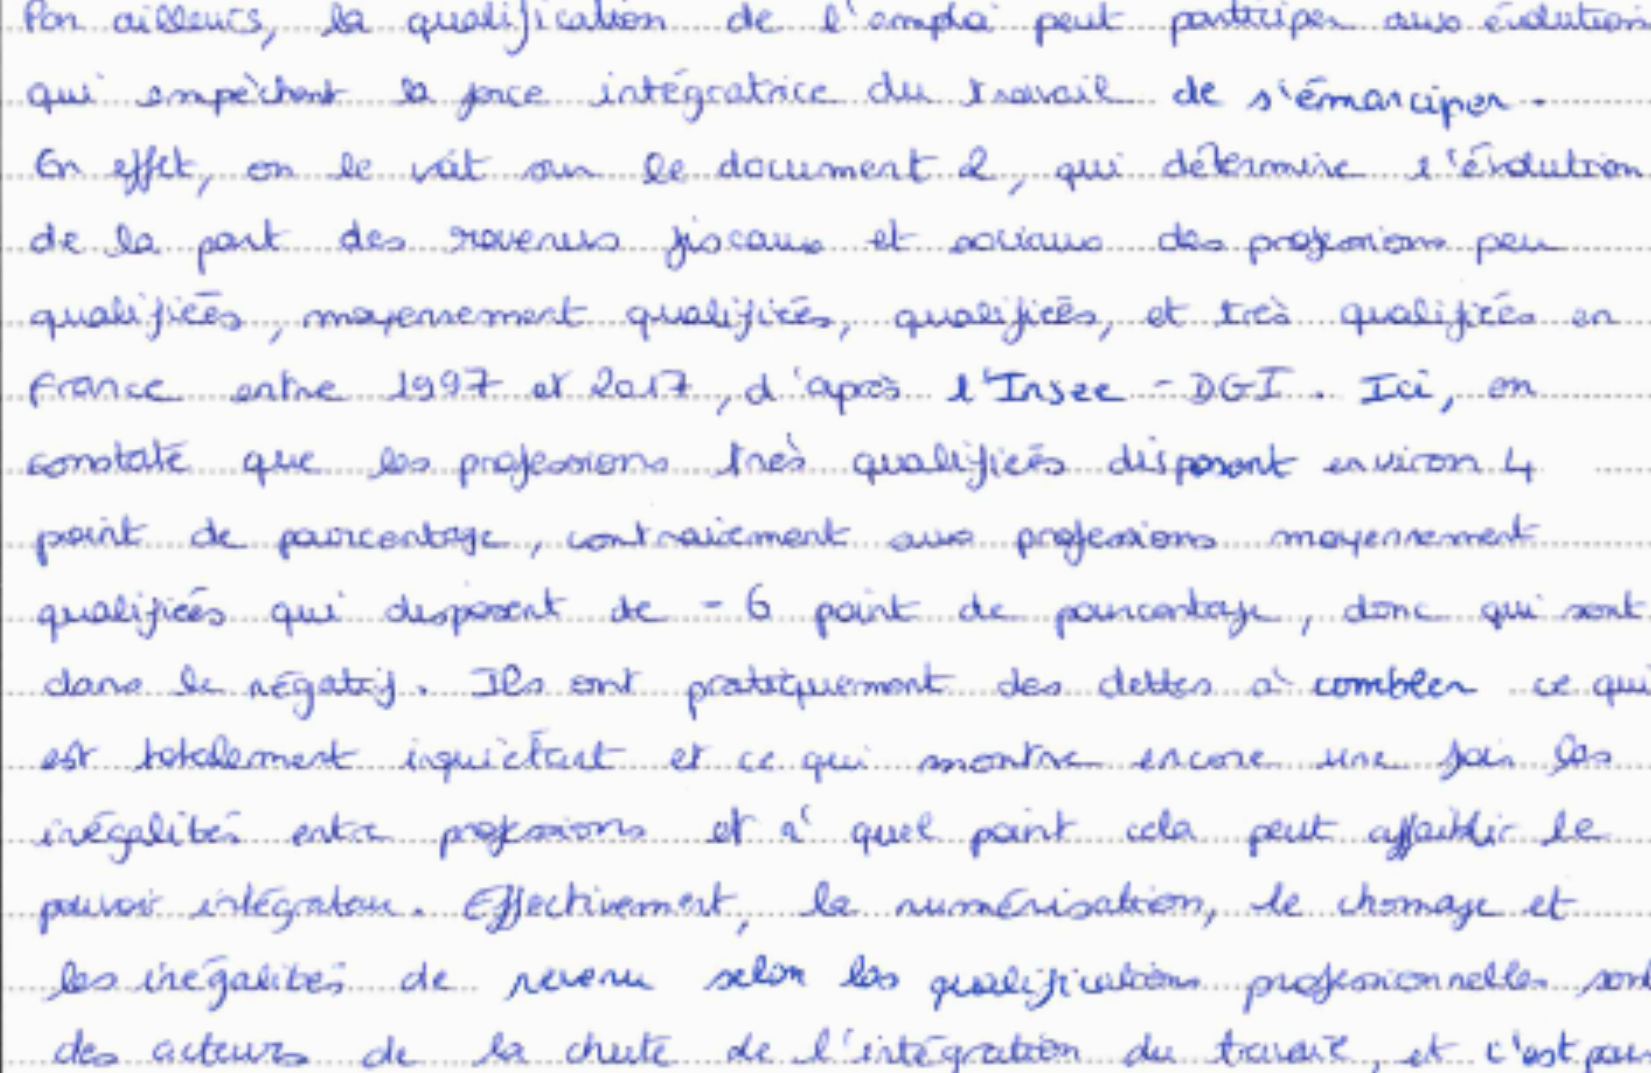 Par ailleurs, la qualification de l'emploi peut participer aux évolutions
qui empêchent la force intégratrice du travail de s'émanciper.
En effet, on le voit sur le document 2, qui détermine l'évolution
de la part des revenus fiscaux et sociaux des professions peu
qualifiées, moyennement qualifiées, qualifiées, et très qualifiées en
France entre 1997 et 2017, d'après l'Insee - DGI. Ici, on
constate que les professions très qualifiées disposent environ 4
point de pourcentage, contrairement aux professions moyennement
qualifiées qui disposent de - 6 point de pourcentage, donc qui sont
dans le négatif. Ils ont pratiquement des dettes à combler ce qui
est totalement inquiétant et ce qui montre encore une fois les
inégalités entre professions et à quel point cela peut affaiblir le
pouvoir intégrateur. Effectivement, la numérisation, le chomage et
les inégalités de revenu selon les qualifications professionnelles sont
des acteurs de la chute de l'intégration du travail, et c'est pour